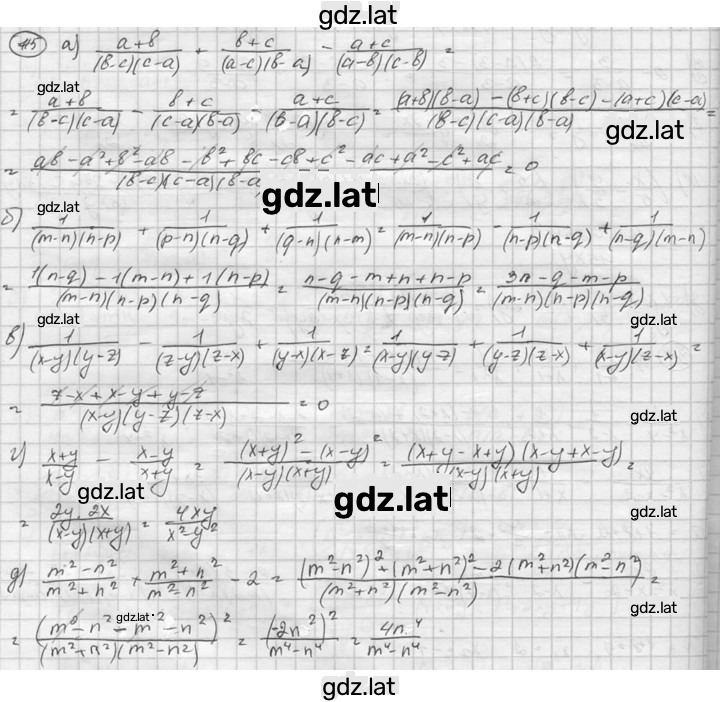 gdz.lat
№5 а) (a+b)/((b-c)(c-a)) + (b+c)/((a-c)(b-a)) - (a+c)/((a-b)(c-b)) =
gdz.lat
= (a+b)/((b-c)(c-a)) - (b+c)/((c-a)(b-a)) - (a+c)/((b-a)(b-c)) = ((a+b)(b-a) - (b+c)(b-c) - (a+c)(c-a))/((b-c)(c-a)(b-a)) =
gdz.lat
= (ab-a²+b²-ab-b²+bc-cb+c²-ac+a²-c²+ac)/((b-c)(c-a)(b-a) = 0
gdz.lat
gdz.lat
б) 1/((m-n)(n-p)) + 1/((p-n)(n-q)) + 1/((q-n)(n-m)) = 1/((m-n)(n-p)) - 1/((n-p)(n-q)) + 1/((n-q)(m-n))
gdz.lat
= (1(n-q) - 1(m-n) + 1(n-p))/((m-n)(n-p)(n-q)) = (n-q-m+n+n-p)/((m-n)(n-p)(n-q)) = (3n-q-m-p)/((m-n)(n-p)(n-q))
gdz.lat
gdz.lat
в) 1/((x-y)(y-z)) - 1/((z-y)(z-x)) + 1/((y-x)(x-z)) = 1/((x-y)(y-z)) + 1/((y-z)(z-x)) + 1/((x-y)(z-x)) =
= (z-x+x-y+y-z)/((x-y)(y-z)(z-x)) = 0
gdz.lat
г) (x+y)/(x-y) - (x-y)/(x+y) = ((x+y)²-(x-y)²)/((x-y)(x+y)) = ((x+y-x+y)(x-y+x-y))/((x-y)(x+y)) =
gdz.lat
gdz.lat
= (2y·2x)/((x-y)(x+y)) = 4xy/(x²-y²)
gdz.lat
д) (m²-n²)/(m²+n²) + (m²+n²)/(m²-n²) - 2 = ((m²-n²)²+(m²+n²)²-2(m²+n²)(m²-n²))/((m²+n²)(m²-n²)) =
gdz.lat
gdz.lat
= (m²-n²-m²-n²)²/((m²+n²)(m²-n²)) = (-2n²)²/(m⁴-n⁴) = 4n⁴/(m⁴-n⁴)
gdz.lat